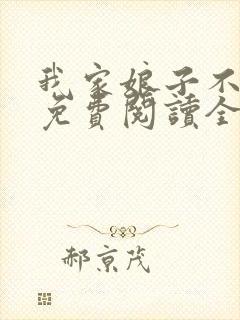 我家娘子不
免費閱讀全
郝京茂